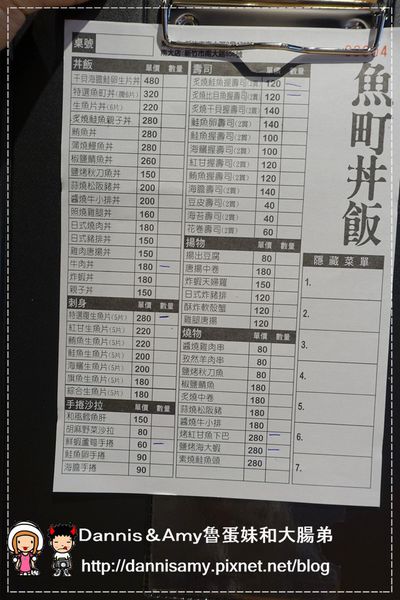 桌號
魚町丼飯
丼飯 單價 數量
干貝海膽鮭卵生片丼 480
特選魚町丼(機6片) 320
生魚片丼(6片) 220
炙燒鮭魚親子丼 280
鮪魚丼 280
蒲燒鰻魚丼 280
椒鹽鯖魚丼 260
鹽烤秋刀魚丼 150
蒜燒松阪豬丼 200
醬燒牛小排丼 200
照燒雞腿丼 160
日式燒肉丼 150
日式豬排丼 150
雞肉唐揚丼 150
牛肉丼 180
炸蝦丼 180
親子丼 150
刺身 單價 數量
特選厚生魚片(5片) 280
紅甘生魚片(5片) 220
鮪魚生魚片(5片) 220
鮭魚生魚片(5片) 200
海鱺生魚片(5片) 200
旗魚生魚片(5片) 180
綜合生魚片(5片) 180
手捲沙拉 單價 數量
和風鱈魚肝 150
胡麻野菜沙拉 80
鮮蝦蘆筍手捲 60
鮭魚卵手捲 90
海膽手捲 90
壽司 單價 數量
炙燒鮭魚握壽司(2貫) 120
炙燒比目魚握壽司(2貫) 120
炙燒干貝握壽司(2貫) 140
鮭魚卵壽司(2貫) 140
鮭魚握壽司(2貫) 100
海鱺握壽司(2貫) 100
紅甘握壽司(2貫) 120
鮪魚握壽司(2貫) 120
海膽壽司(2貫) 140
豆皮壽司(2貫) 40
海苔壽司(2貫) 40
花卷壽司(2貫) 60
揚物 單價 數量
揚出豆腐 80
唐揚中卷 180
炸蝦天婦羅 150
日式炸豬排 120
酥炸軟殼蟹 120
雞腿唐揚 120
燒物 單價 數量
醬燒雞肉串 80
孜然羊肉串 80
鹽烤秋刀魚 80
椒鹽鯖魚 180
炙燒中卷 180
蒜燒松阪豬 180
醬燒牛小排 180
烤紅甘魚下巴 280
鹽烤海大蝦 280
素燒鮭魚頭 280
隱藏菜單
1.
2.
3.
4.
5.
6.
7.
Dannis＆Amy魯蛋妹和大腸弟
http://dannisamy.pixnet.net/blog